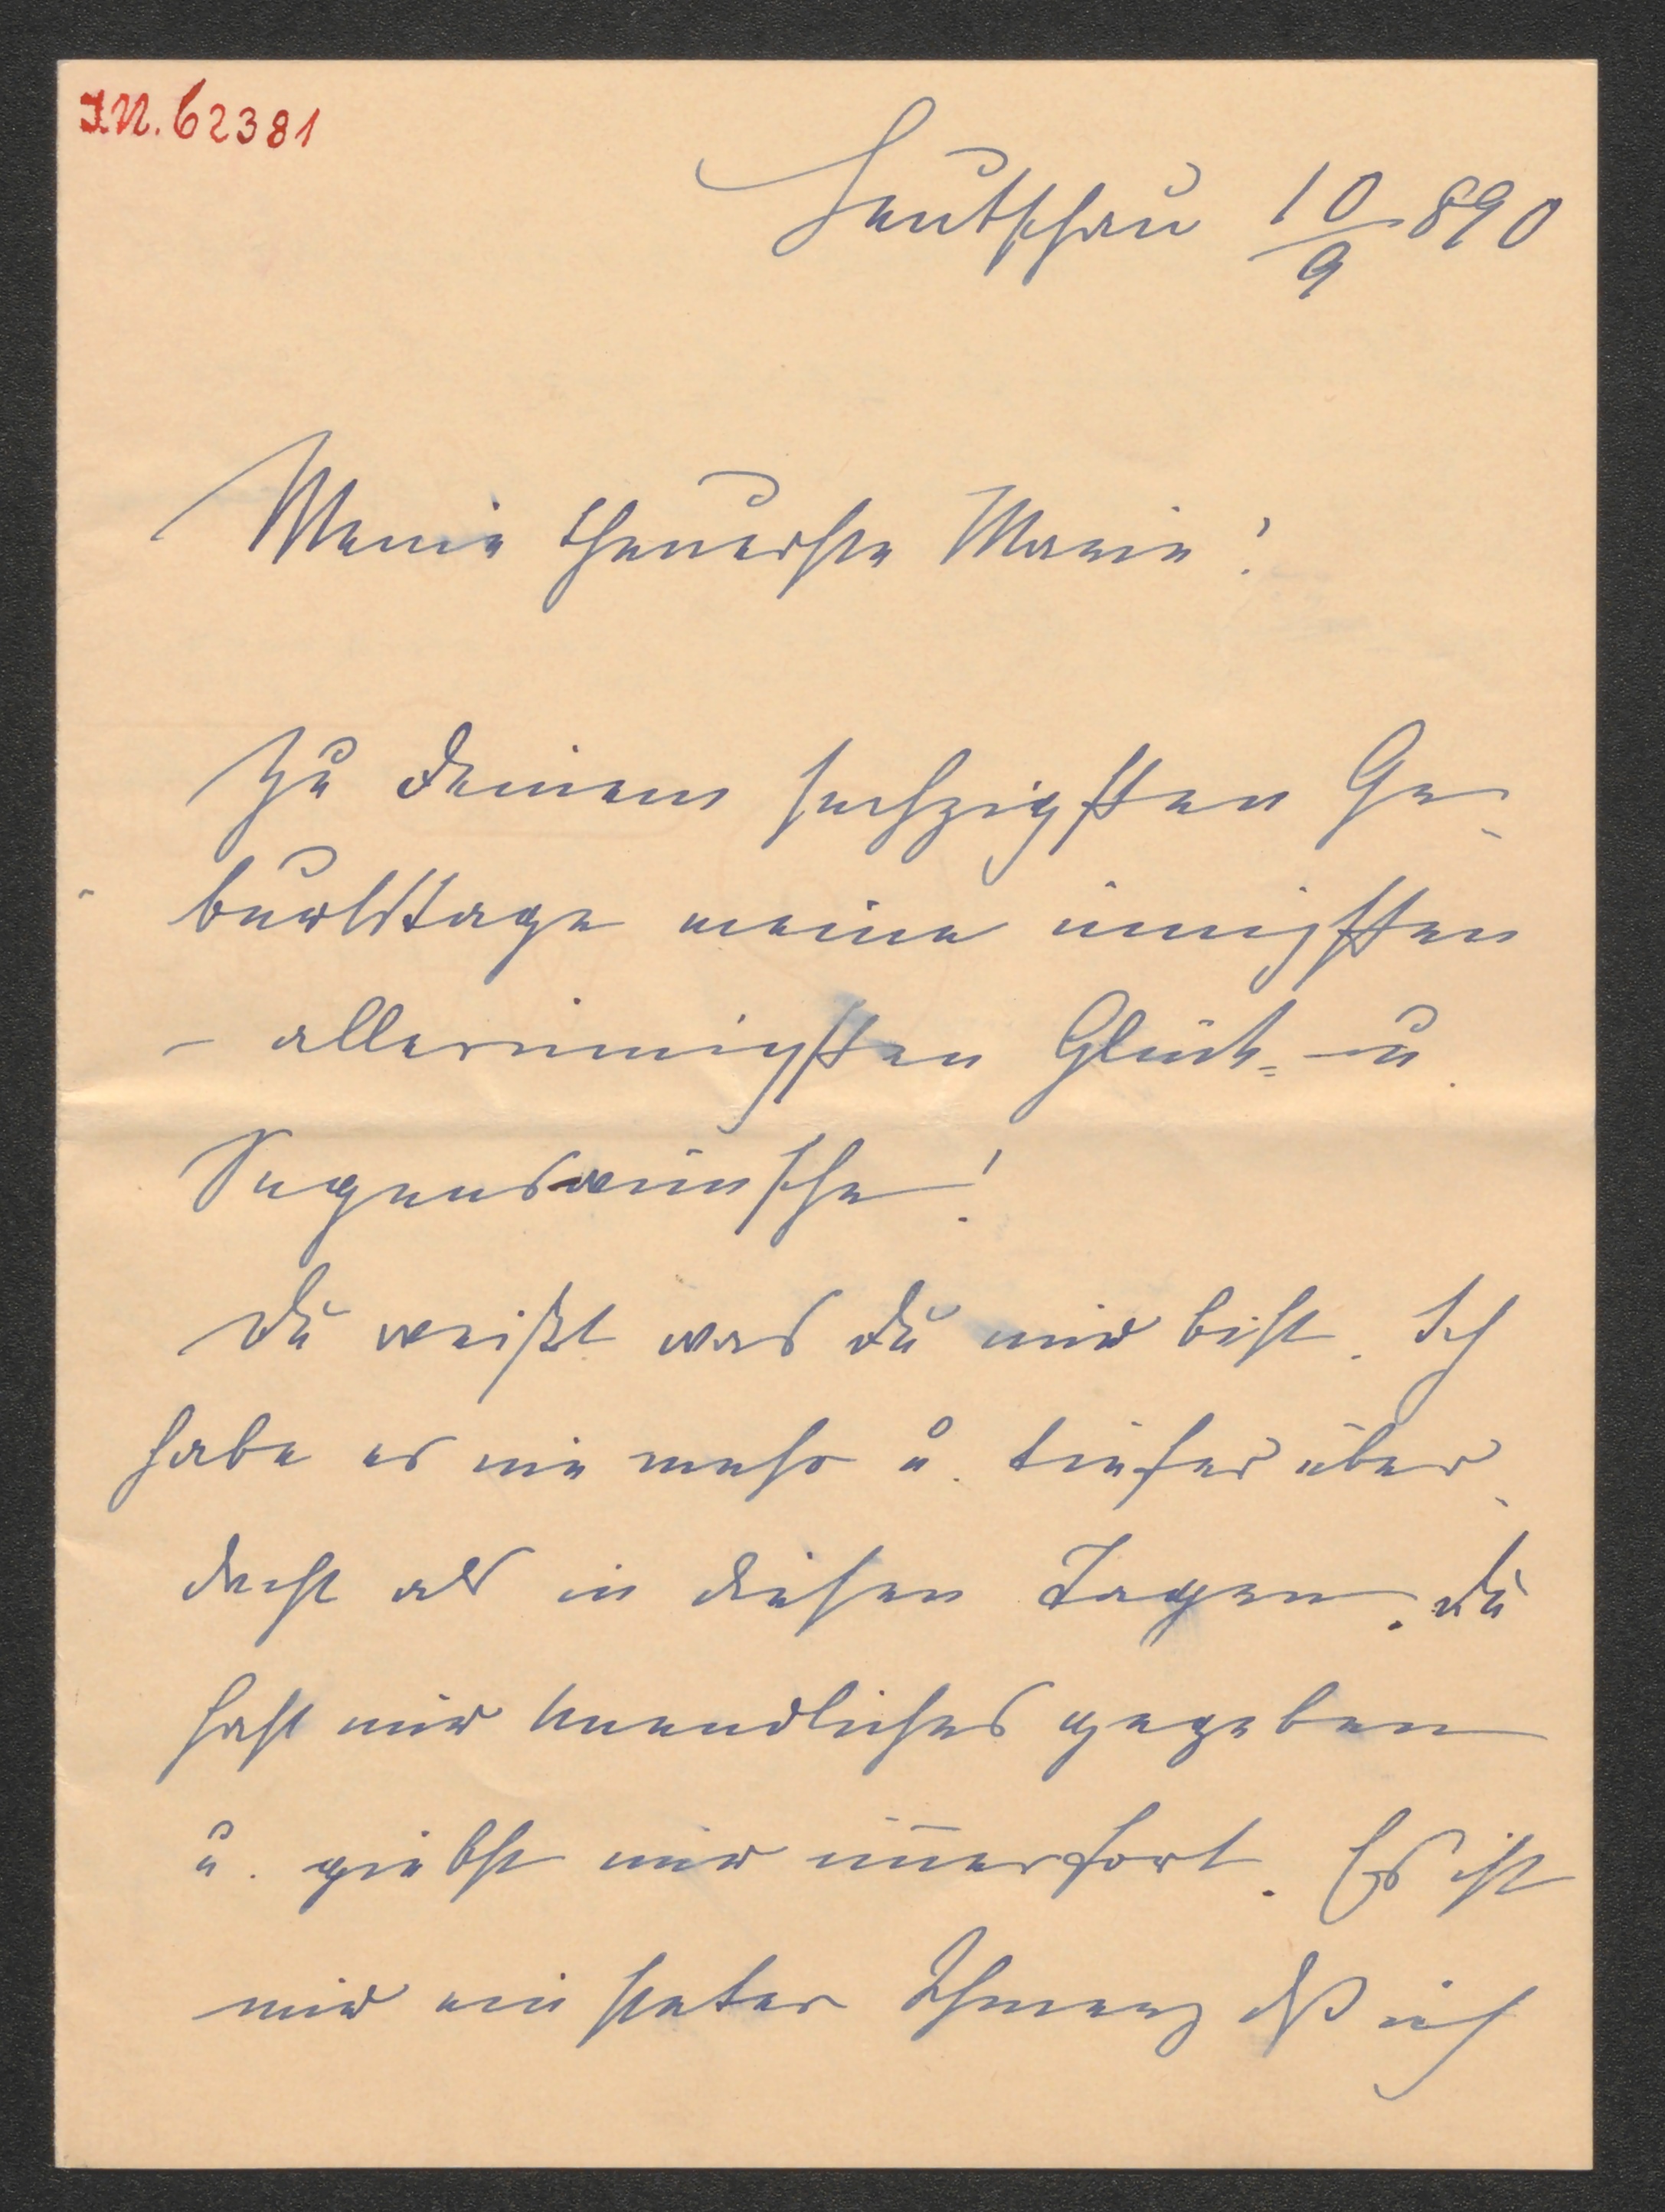 I.N. 62381
Leutschau 10/9 890
Meine theuerste Marie!
Zu Deinem sechzigsten Ge-
burtstage meine innigsten
- allerinnigsten Glück- u.
Segenswünsche!
Du weißt was Du mir bist. Ich
habe es nie mehr u. tiefer über-
dacht als in diesen Tagen. Du
hast mir Unendliches gegeben
u. giebst mir im̄erfort. Es ist
mir ein steter Schmerz dß ich